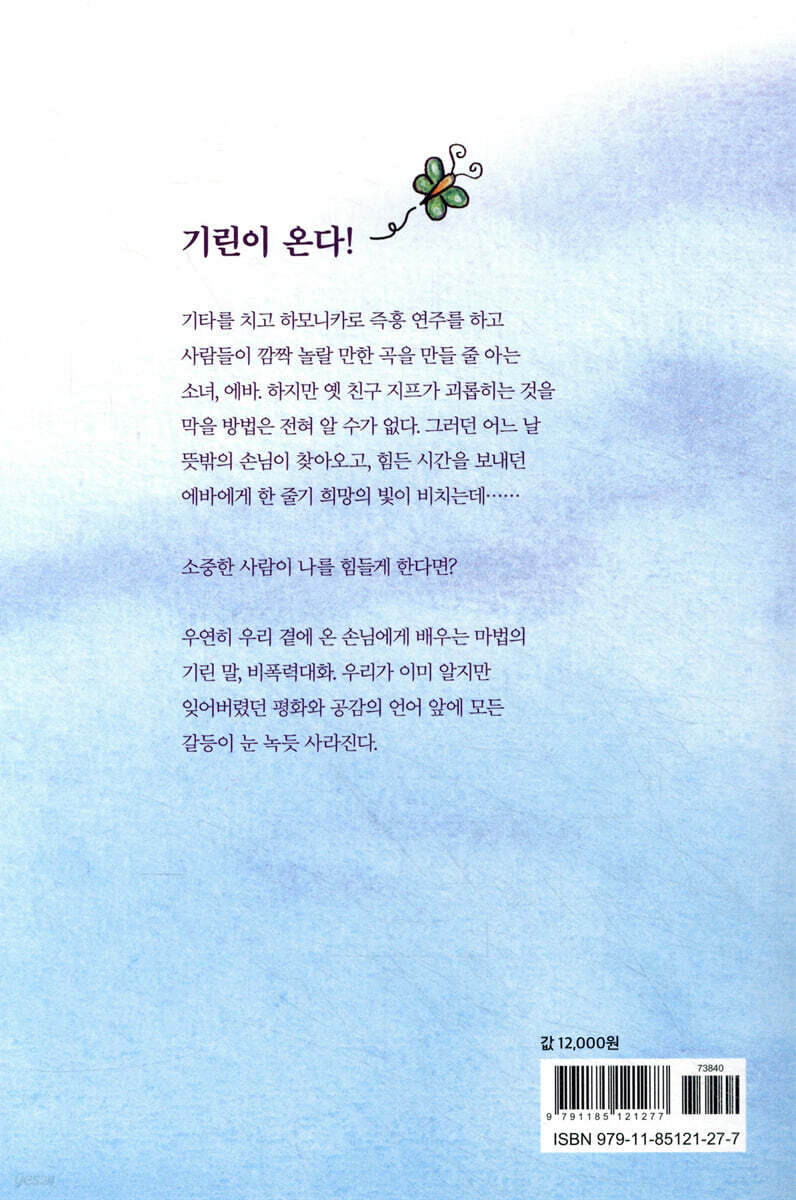 기린이 온다!
기타를 치고 하모니카로 즉흥 연주를 하고
사람들이 깜짝 놀랄 만한 곡을 만들 줄 아는
소녀, 에바. 하지만 옛 친구 지프가 괴롭히는 것을
막을 방법은 전혀 알 수가 없다. 그러던 어느 날
뜻밖의 손님이 찾아오고, 힘든 시간을 보내던
에바에게 한 줄기 희망의 빛이 비치는데……
소중한 사람이 나를 힘들게 한다면?
우연히 우리 곁에 온 손님에게 배우는 마법의
기린 말, 비폭력대화. 우리가 이미 알지만
잊어버렸던 평화와 공감의 언어 앞에 모든
갈등이 눈 녹듯 사라진다.
값 12,000원
73840
9 791185 121277
ISBN 979-11-85121-27-7
yes24